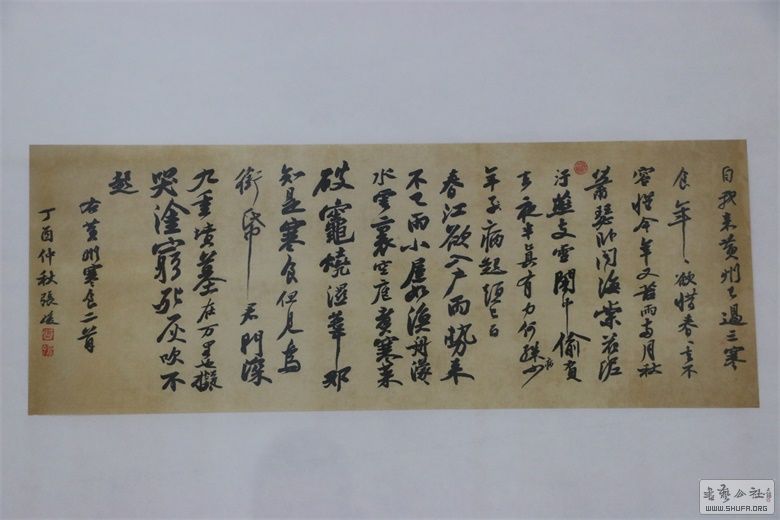 自我来黄州已過三寒
食年〻欲惜春〻去不
容惜今年又苦雨两月秋
蕭瑟卧聞海棠花泥
汙燕支雪闇中偷負
去夜半真有力何殊少病
年子病起頭已白
春江欲入户雨勢来
不已雨小屋如漁舟濛
水雲裏空庖煮寒菜
破竈燒濕葦那
知是寒食但見烏
銜帋君門深
九重墳墓在万里也擬
哭塗窮死灰吹不
起
右黄州寒食二首
丁酉仲秋張
书艺公社
WWW.SHUFA.ORG